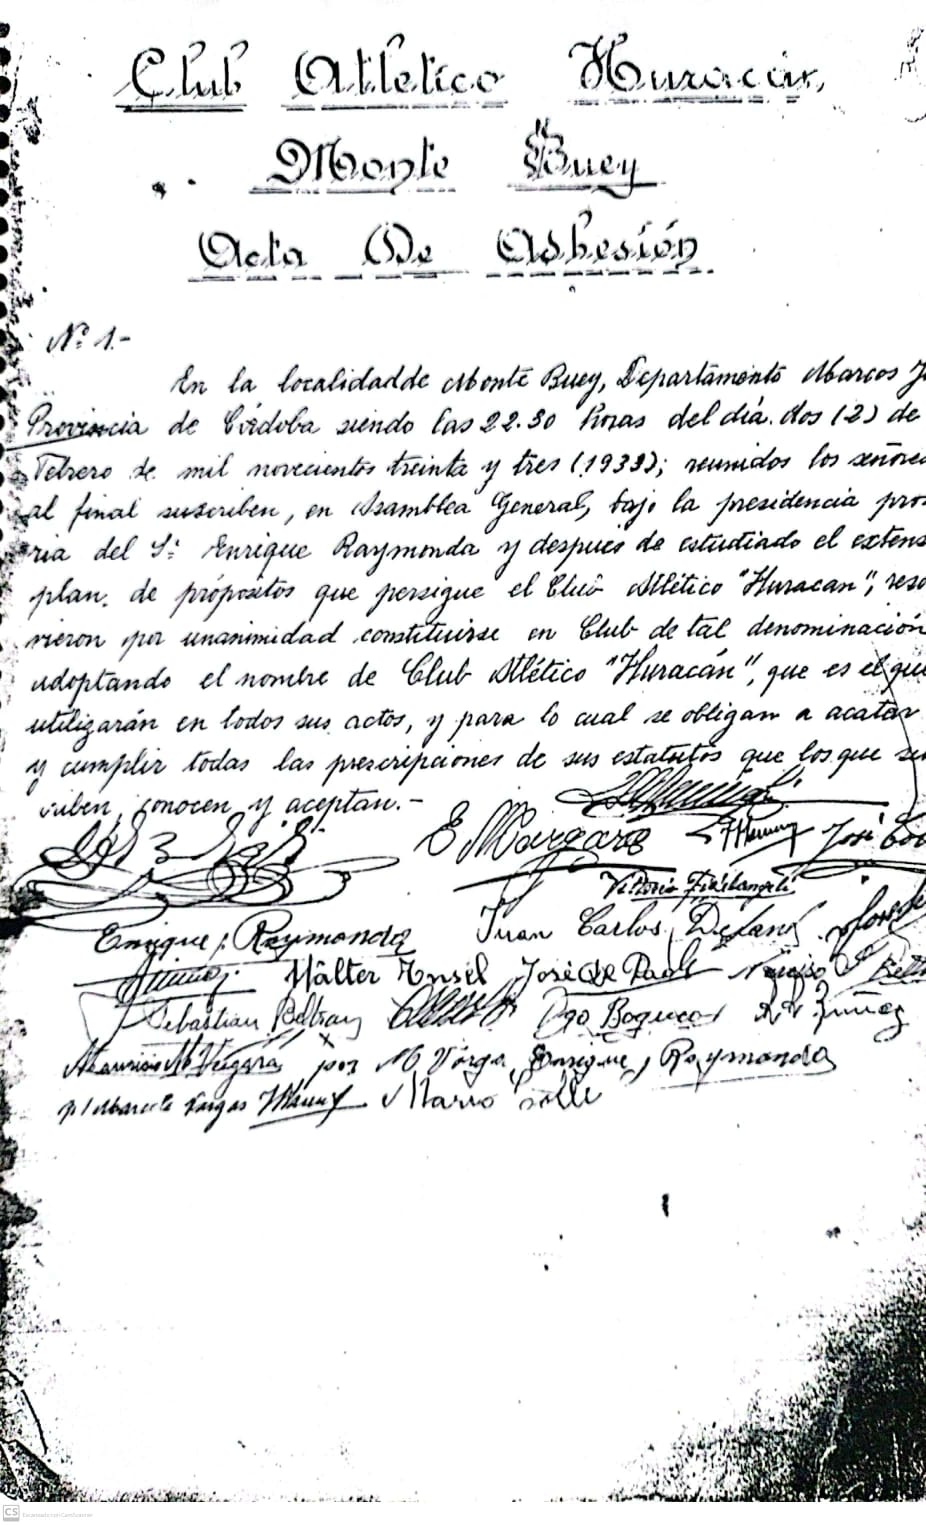 Club Atlético Huracán
Monte Buey
Acta De Adhesión
Nº 1.-
En la localidad de Monte Buey, Departamento Marcos J
Provincia de Córdoba siendo las 22.30 horas del día dos (2) de
Febrero de mil novecientos treinta y tres (1933); reunidos los señores
al final suscriben, en Asamblea General, bajo la presidencia pro
ria del Sr. Enrique Raymonda y después de estudiado el extens
plan de propósitos que persigue el Club Atlético "Huracan", reso
vieron por unanimidad constituirse en Club de tal denominación
adoptando el nombre de Club Atlético "Huracán", que es el que
utilizarán en todos sus actos, y para lo cual se obligan a acatar
y cumplir todas las prescripciones de sus estatutos que los que su
criben, conocen y aceptan.-
E Margara José
Enrique Raymonda Juan Carlos
Wálter Ensel José de Paoli
Sebastian Beltran R. R. Zuñez
Mauricio M Vergara por M Vargas, Enrique Raymonda
p/ Marcelo Vargas Mario
CS Escaneado con CamScanner